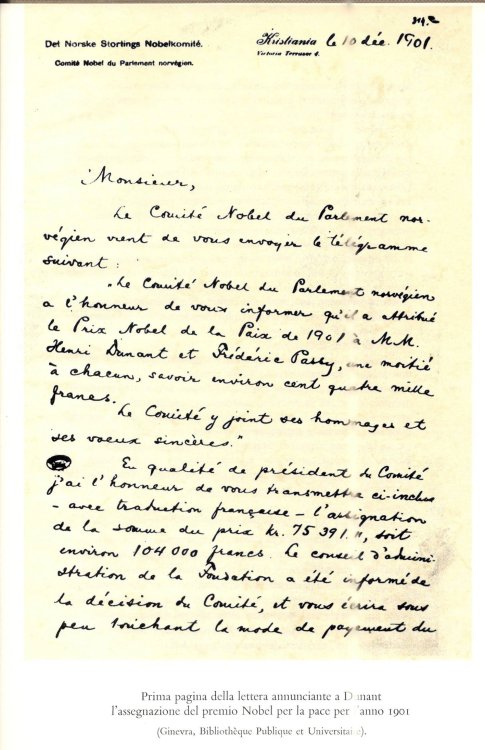 Det Norske Stortings Nobelkomité.
Comité Nobel du Parlement norvégien.
Kristiania le 10 déc. 1901.
Victoria Terrasse 4.
Monsieur,
Le Comité Nobel du Parlement nor-
végien vient de vous envoyer le télégramme
suivant :
"Le Comité Nobel du Parlement norvégien
a l'honneur de vous informer qu'il a attribué
le Prix Nobel de la Paix de 1901 à MM.
Henri Dunant et Frédéric Passy, une moitié
à chacun, savoir environ cent quatre mille
francs.
Le Comité y joint ses hommages et
ses voeux sincères."
En qualité de président du Comité
j'ai l'honneur de vous transmettre ci-inclus
- avec traduction française - l'assignation
de la somme du prix kr. 75 391. ", soit
environ 104 000 francs. Le conseil d'admini-
stration de la Fondation a été informé de
la décision du Comité, et vous écrira sous
peu touchant la mode de payement du
Prima pagina della lettera annunciante a Dunant
l'assegnazione del premio Nobel per la pace per l'anno 1901
(Ginevra, Bibliothèque Publique et Universitaire).